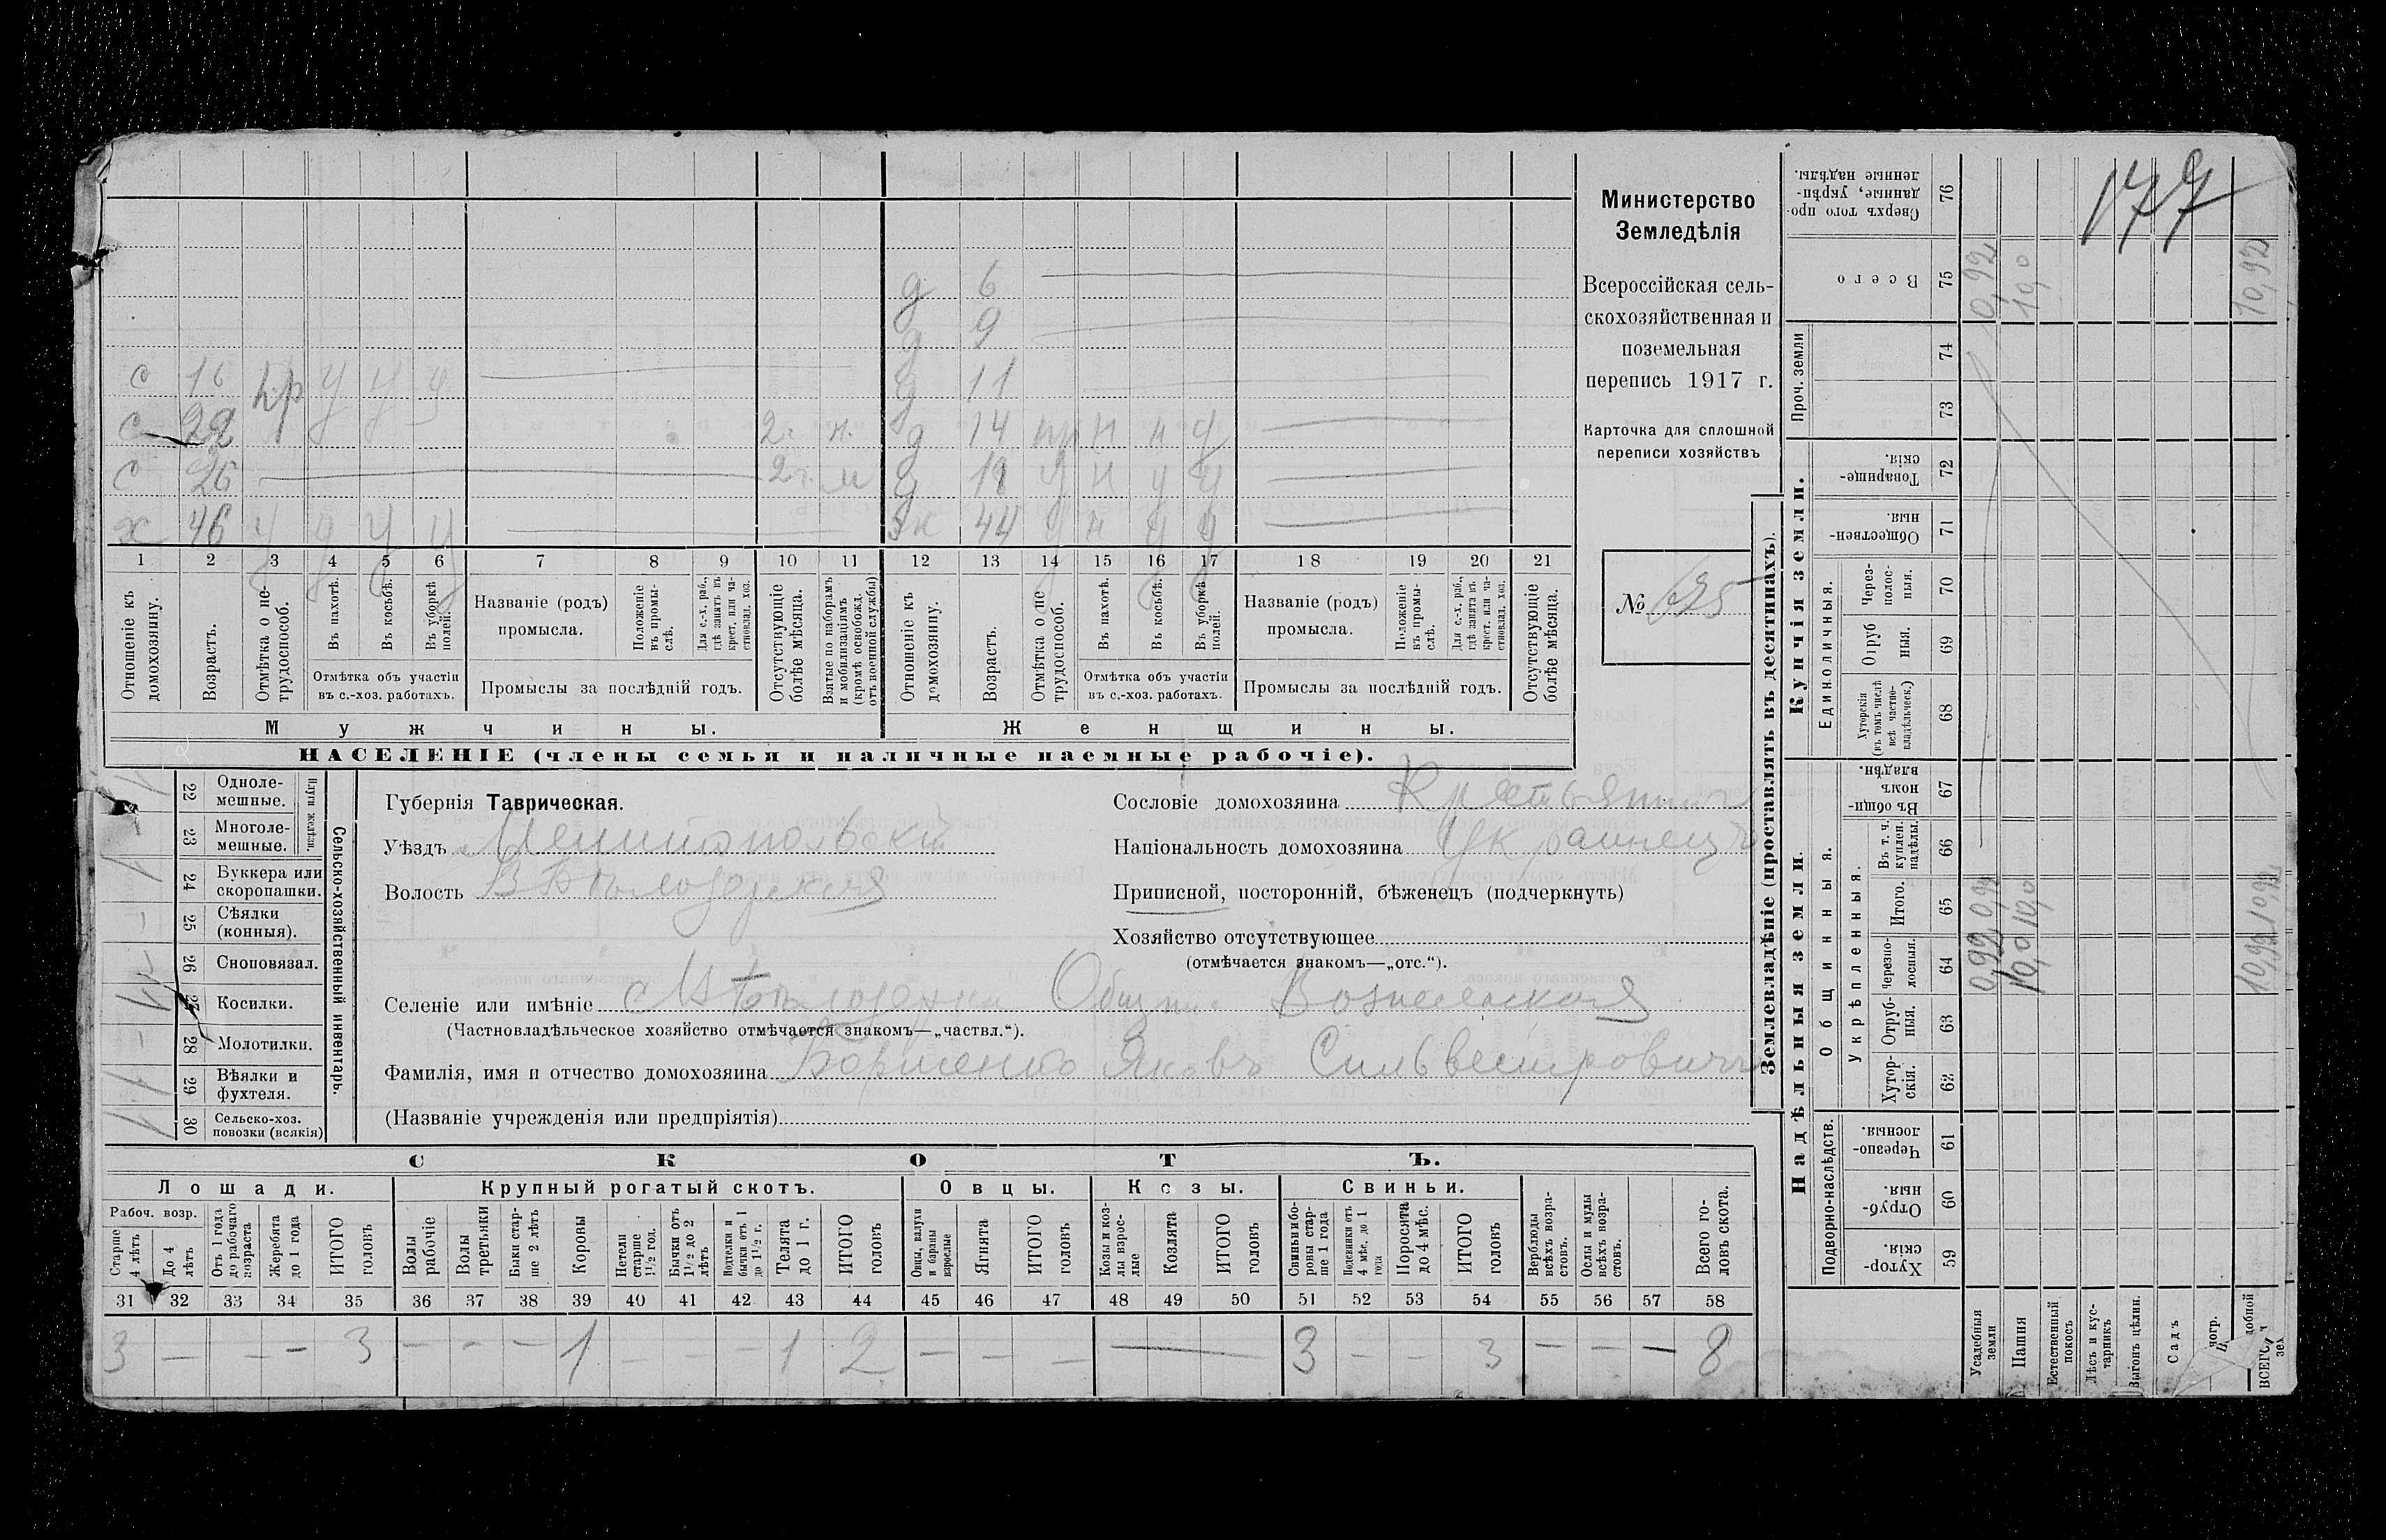 177
Министерство
Земледѣлія
Всероссійская сель-
скохозяйственная и
поземельная
перепись 1917 г.
Карточка для сплошной
переписи хозяйствъ
№
д 6
д 9
с 16 нр у у у
д 11
с 22 2 г. н.
д 14 пр н н у
с 26 2 г. м
д 18 у н у у
х 46 у у у у
жн 44 у н у у
1 2 3 4 5 6 7 8 9 10 11 12 13 14 15 16 17 18 19 20 21
Отношеніе къ домохозяину.
Возрастъ.
Отмѣтка о не-трудоспособ.
Въ пахотѣ.
Въ косьбѣ.
Въ уборкѣ полей.
Отмѣтка объ участіи
въ с.-хоз. работахъ.
Названіе (родъ)
промысла.
Положеніе въ промы-слѣ.
Для с.-х. раб., гдѣ занятъ въ крест. или ча-стновлад. хоз.
Промыслы за послѣдній годъ.
Отсутствующіе болѣе мѣсяца.
Взятые по наборамъ и мобилизаціямъ (кромѣ освобожд. отъ военной службы)
Отношеніе къ домохозяину.
Возрастъ.
Отмѣтка о не-трудоспособ.
Въ пахотѣ.
Въ косьбѣ.
Въ уборкѣ полей.
Отмѣтка объ участіи
въ с.-хоз. работахъ.
Названіе (родъ)
промысла.
Положеніе въ промы-слѣ.
Для с.-х. раб., гдѣ занята въ крест. или ча-стновлад. хоз.
Промыслы за послѣдній годъ.
Отсутствующіе болѣе мѣсяца.
Мужчины.
Женщины.
НАСЕЛЕНІЕ (члены семьи и наличные наемные рабочіе).
22 Одноле-мешные.
23 Многоле-мешные.
Плуги желѣзн.
24 Буккера или скоропашки.
25 Сѣялки (конныя).
26 Сноповязал.
27 Косилки.
28 Молотилки.
29 Вѣялки и фухтеля.
30 Сельско-хоз. повозки (всякія)
Сельско-хозяйственный инвентарь.
Губернія Таврическая.
Уѣздъ Мелитопольскій
Волость В Бѣлозерская
Сословіе домохозяина Крестьянинъ
Національность домохозяина Украинецъ
Приписной, посторонній, бѣженецъ (подчеркнуть)
Хозяйство отсутствующее
(отмѣчается знакомъ—„отс.“).
Селеніе или имѣніе с В Бѣлозерка Общ. Вознесенская
(Частновладѣльческое хозяйство отмѣчается знакомъ—„частвл.“).
Фамилія, имя и отчество домохозяина Борисенко Яковъ Сильвестровичъ
(Названіе учрежденія или предпріятія)
СКОТЪ.
Лошади. Крупный рогатый скотъ. Овцы. Козы. Свиньи.
Рабоч. возр.
Старше 4 лѣтъ
До 4 лѣтъ
Отъ 1 года до рабочаго возраста
Жеребята до 1 года
ИТОГО головъ
Волы рабочіе
Волы третьяки
Быки стар-ше 2 лѣтъ
Коровы
Нетели старше 1½ год.
Бычки отъ 1½ до 2 лѣтъ
Подтелки и бычки отъ 1 до 1½ г.
Телята до 1 г.
ИТОГО головъ
Овцы, валухи и бараны взрослые
Ягнята
ИТОГО головъ
Козы и коз-лы взрос-лые
Козлята
ИТОГО головъ
Свиньи и бо-ровы стар-ше 1 года
Подсвинки отъ 4 мѣс. до 1 года
Поросята до 4 мѣс.
ИТОГО головъ
Верблюды всѣхъ возра-стовъ.
Ослы и мулы всѣхъ возра-стовъ.
Всего го-ловъ скота.
31 32 33 34 35 36 37 38 39 40 41 42 43 44 45 46 47 48 49 50 51 52 53 54 55 56 57 58
3 — — — 3 — — — 1 — — — 1 2 — — — — 3 — — 3 — — — 8
Землевладѣніе (проставлять въ десятинахъ).
Купчія земли.
Надѣльныя земли.
Сверхъ того про-данные, укрѣп-ленные надѣлы. 76
Всего 75 0,92 10,0 10,92
Проч. земли 74 73
Товарище-скія. 72
Общественныя. 71
Единоличныя.
Через-полос-ныя. 70
Отруб ныя. 69
Хуторскія (въ томъ числѣ всѣ частно-владѣльческ.) 68
Въ общи-номъ владѣн. 67
Общинныя.
Укрѣпленныя.
Въ т. ч. куплен. надѣлы. 66
Итого. 65 0,92 10,0 10,92
Черезпо-лосныя. 64 0,92 10,0 10,92
Отруб-ныя. 63
Хутор-скія. 62
Подворно-наслѣдств.
Черезпо-лосныя. 61
Отруб-ныя. 60
Хутор-скія. 59
Усадебныя земли
Пашня
Естественный покосъ
Лѣсъ и кус-тарникъ
Выгонъ цѣлин.
Садъ